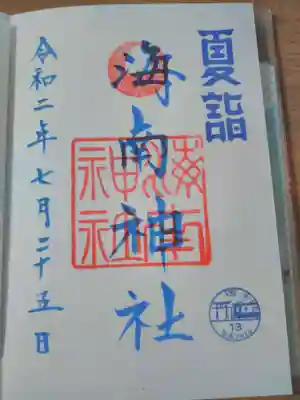 夏詣
海南神社
海南神社
令和二年七月二十五日
13